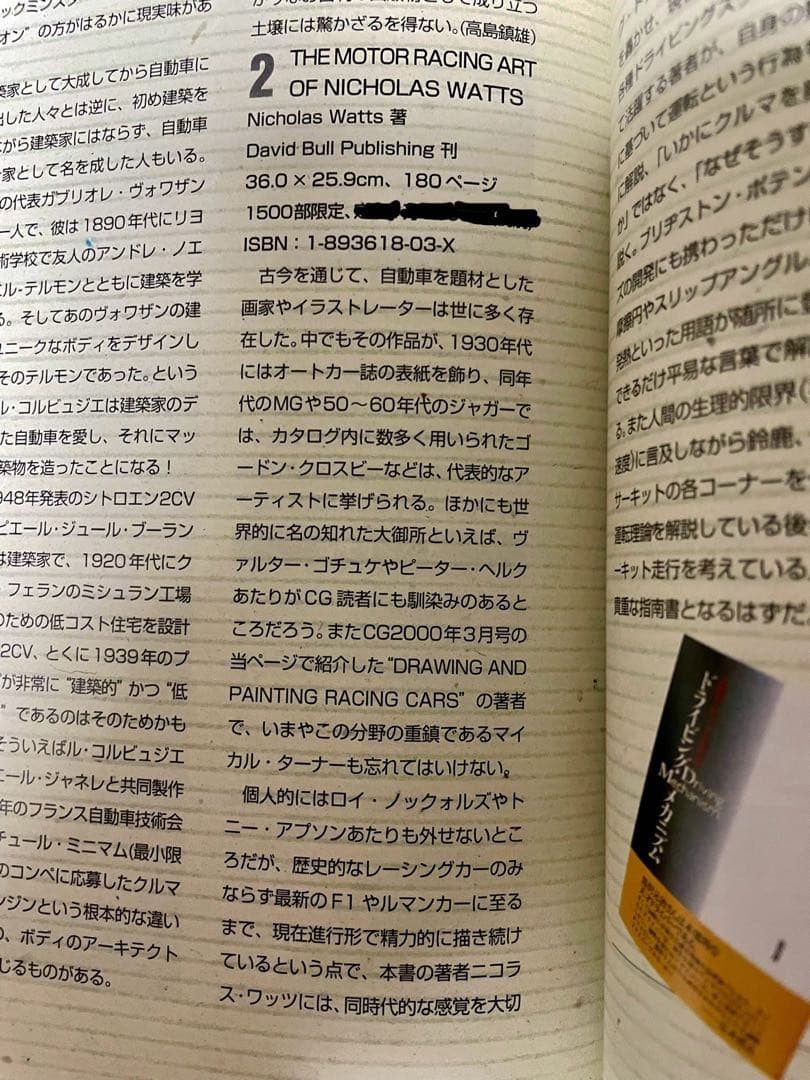 オン”の方がはるかに現実味があ
築家として大成してから自動車に
出した人々とは逆に、初め建築を
がら建築家にはならず、自動車
家として名を成した人もいる。
の代表ガブリオレ・ヴォワザン
一人で、彼は1890年代にリヨ
術学校で友人のアンドレ・ノエ
エル・テルモンとともに建築を学
る。そしてあのヴォワザンの建
ユニークなボディをデザインし
そのテルモンであった。という
ル・コルビュジエは建築家のデ
た自動車を愛し、それにマッ
築物を造ったことになる!
948年発表のシトロエン2CV
ピエール・ジュール・ブーラン
は建築家で、1920年代にク
・フェランのミシュラン工場
のための低コスト住宅を設計
2CV、とくに1939年のプ
が非常に“建築的”かつ“低
”であるのはそのためかも
そういえばル・コルビュジエ
エール・ジャネレと共同製作
年のフランス自動車技術会
チュール・ミニマム(最小限
のコンペに応募したクルマ
ンジンという根本的な違い
の、ボディのアーキテクト
じるものがある。
土壌には驚かざるを得ない。(高島鎮雄)
2 THE MOTOR RACING ART
OF NICHOLAS WATTS
Nicholas Watts 著
David Bull Publishing 刊
36.0×25.9cm、180ページ
1500部限定、
ISBN：1-893618-03-X
古今を通じて、自動車を題材とした
画家やイラストレーターは世に多く存
在した。中でもその作品が、1930年代
にはオートカー誌の表紙を飾り、同年
代のMGや50～60年代のジャガーで
は、カタログ内に数多く用いられたゴ
ードン・クロスビーなどは、代表的なア
ーティストに挙げられる。ほかにも世
界的に名の知れた大御所といえば、ヴ
ァルター・ゴチュケやピーター・ヘルク
あたりがCG読者にも馴染みのあると
ころだろう。またCG2000年3月号の
当ページで紹介した“DRAWING AND
PAINTING RACING CARS”の著者
で、いまやこの分野の重鎮であるマイ
カル・ターナーも忘れてはいけない。
個人的にはロイ・ノックォルズやト
ニー・アプソンあたりも外せないとこ
ろだが、歴史的なレーシングカーのみ
ならず最新のF1やルマンカーに至る
まで、現在進行形で精力的に描き続け
ているという点で、本書の著者ニコラ
ス・ワッツには、同時代的な感覚を大切
各種ドライビングス
で活躍する著者が、自身の
に基づいて運転という行為
に解説、「いかにクルマを
か」ではなく、「なぜそうす
説く。ブリヂストン・ポテン
ズの開発にも携わっただけ
摩擦円やスリップアングル
発熱といった用語が随所に
できるだけ平易な言葉で解
る。また人間の生理的限界(
速度)に言及しながら鈴鹿、
サーキットの各コーナーを
運転理論を解説している後
ーキット走行を考えている
貴重な指南書となるはずだ。
ドライビング・メカニズム
Driving
Mechanism